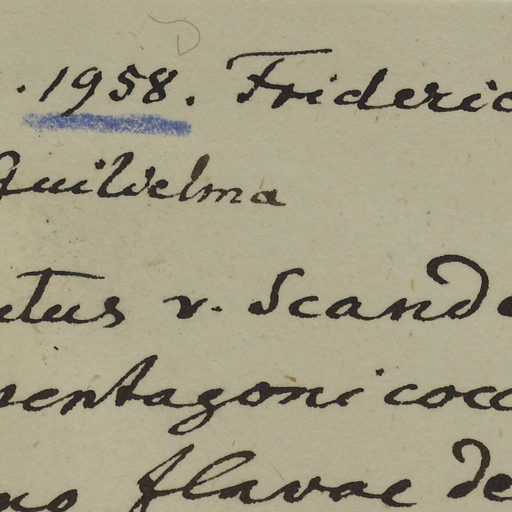 . 1958. Frideric
Guilielma
tus v. Scande
pentagoni cocc
no flavae de